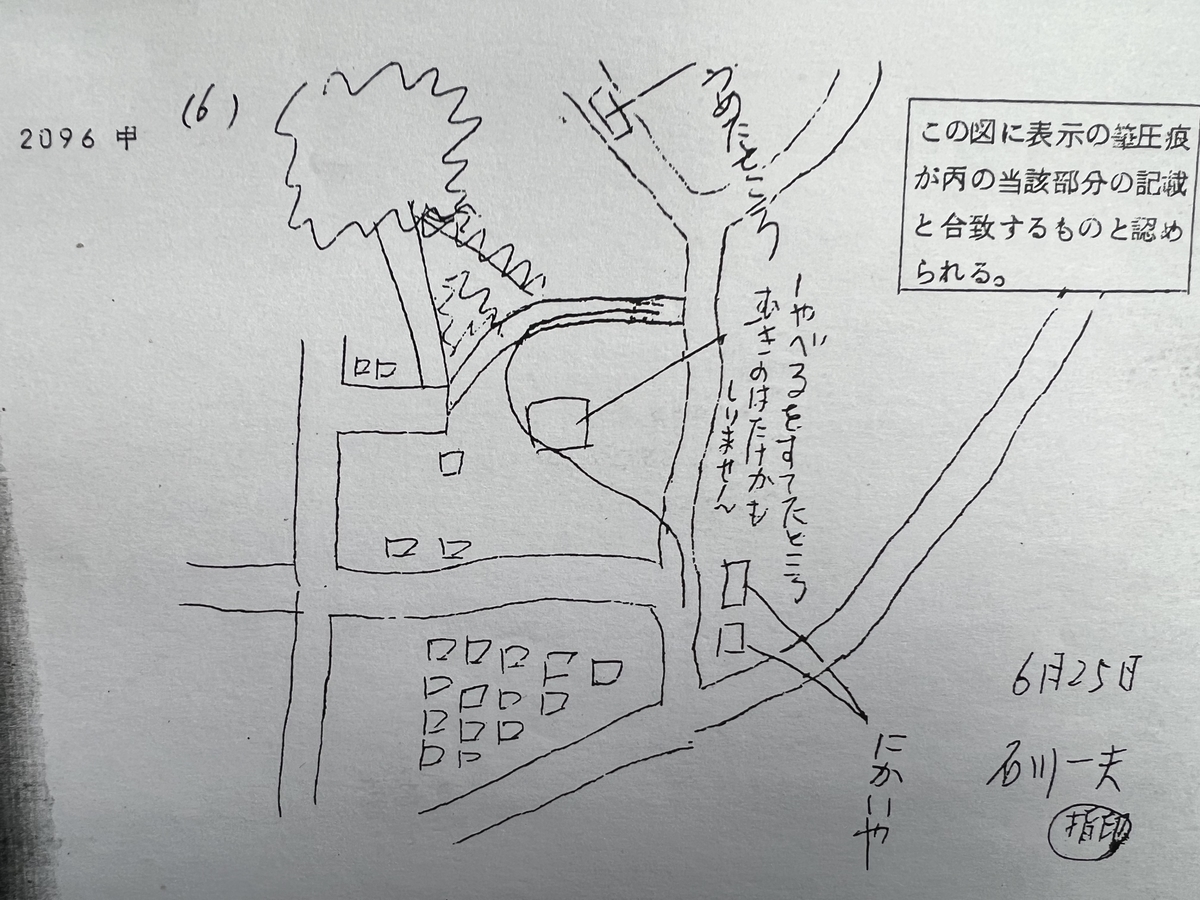 2096 甲
(6)
うめたところ
この図に表示の筆圧痕
が丙の当該部分の記載
と合致するものと認め
られる。
しやべるをすてたところ
むぎのはたけかも
しりません
にかいや
6月25日
石川一夫
指印